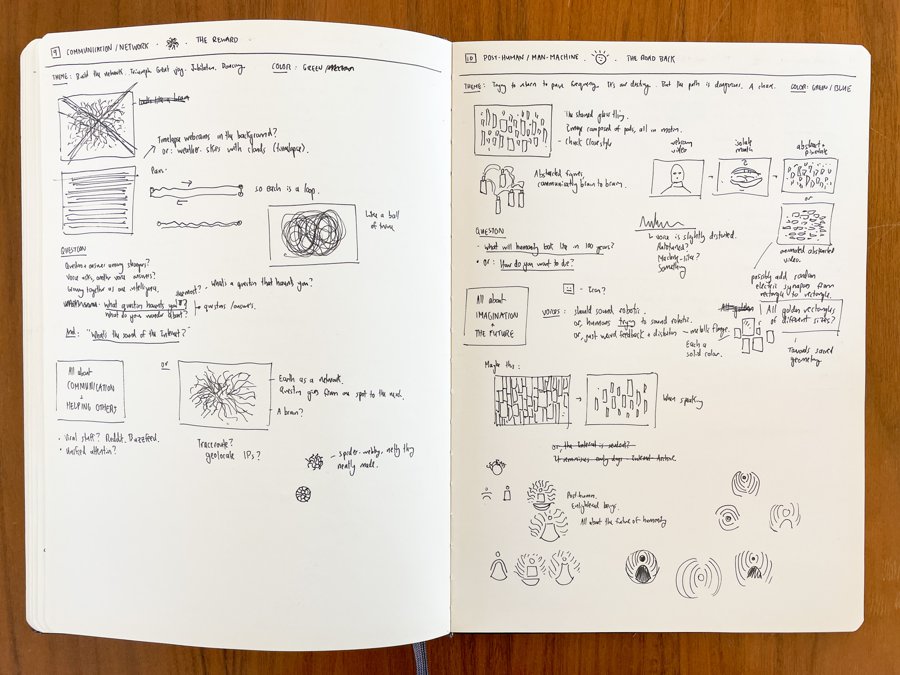 9 COMMUNICATION/NETWORK · THE REWARD
THEME: Build the network. Triumph. Great joy. Jubilation. Dancing.
COLOR: GREEN
Timelapse webcams in the background?
or: weather. skies with clouds (timelapse).
Pan.
so each is a loop.
Like a ball
of twine.
QUESTION
Question + answer among strangers?
Voice asks, another voice answers?
Coming together as one intelligence,
moment?
- What's a question that haunts you?
What question haunts you?
What do you wonder about?
→ questions/answers.
And: "What's the sound of the Internet?"
All about
COMMUNICATION
+
HELPING OTHERS
OR
Earth as a network.
Question goes from one spot to the next.
A brain?
· Viral stuff? Reddit, Buzzfeed.
· Unified attention?
Traceroute?
geolocate IPs?
- spider-webby, netty thing
neatly made.
10 POST-HUMAN/MAN-MACHINE · THE ROAD BACK
THEME: Trying to return to pure frequency. It's our destiny. But the path is dangerous. A chase.
COLOR: GREEN/BLUE
The stained glass thing.
Image composed of pods, all in motion.
- Chuck Close style
Abstracted figures,
communicating brain to brain.
webcam
video
isolate
mouth
abstract +
pixelate
or
animated abstracted
video.
QUESTION
- What will humanity look like in 100 years?
· Or: How do you want to die?
↳ voice is slightly distorted.
Autotuned?
Something
possibly add random
electric synapses from
rectangle to rectangle.
All about
IMAGINATION
+
THE FUTURE
- Icon?
VOICES: should sound robotic.
or, humans trying to sound robotic.
or, just weird feedback + distortion - metallic flange.
Each a
solid color.
All golden rectangles
of different sizes?
Towards sacred
geometry
Maybe this:
When speaking
or, the Internet is sealed?
It remembers only days - Internet Archive
Post human.
Enlightened beings.
All about the future of humanity